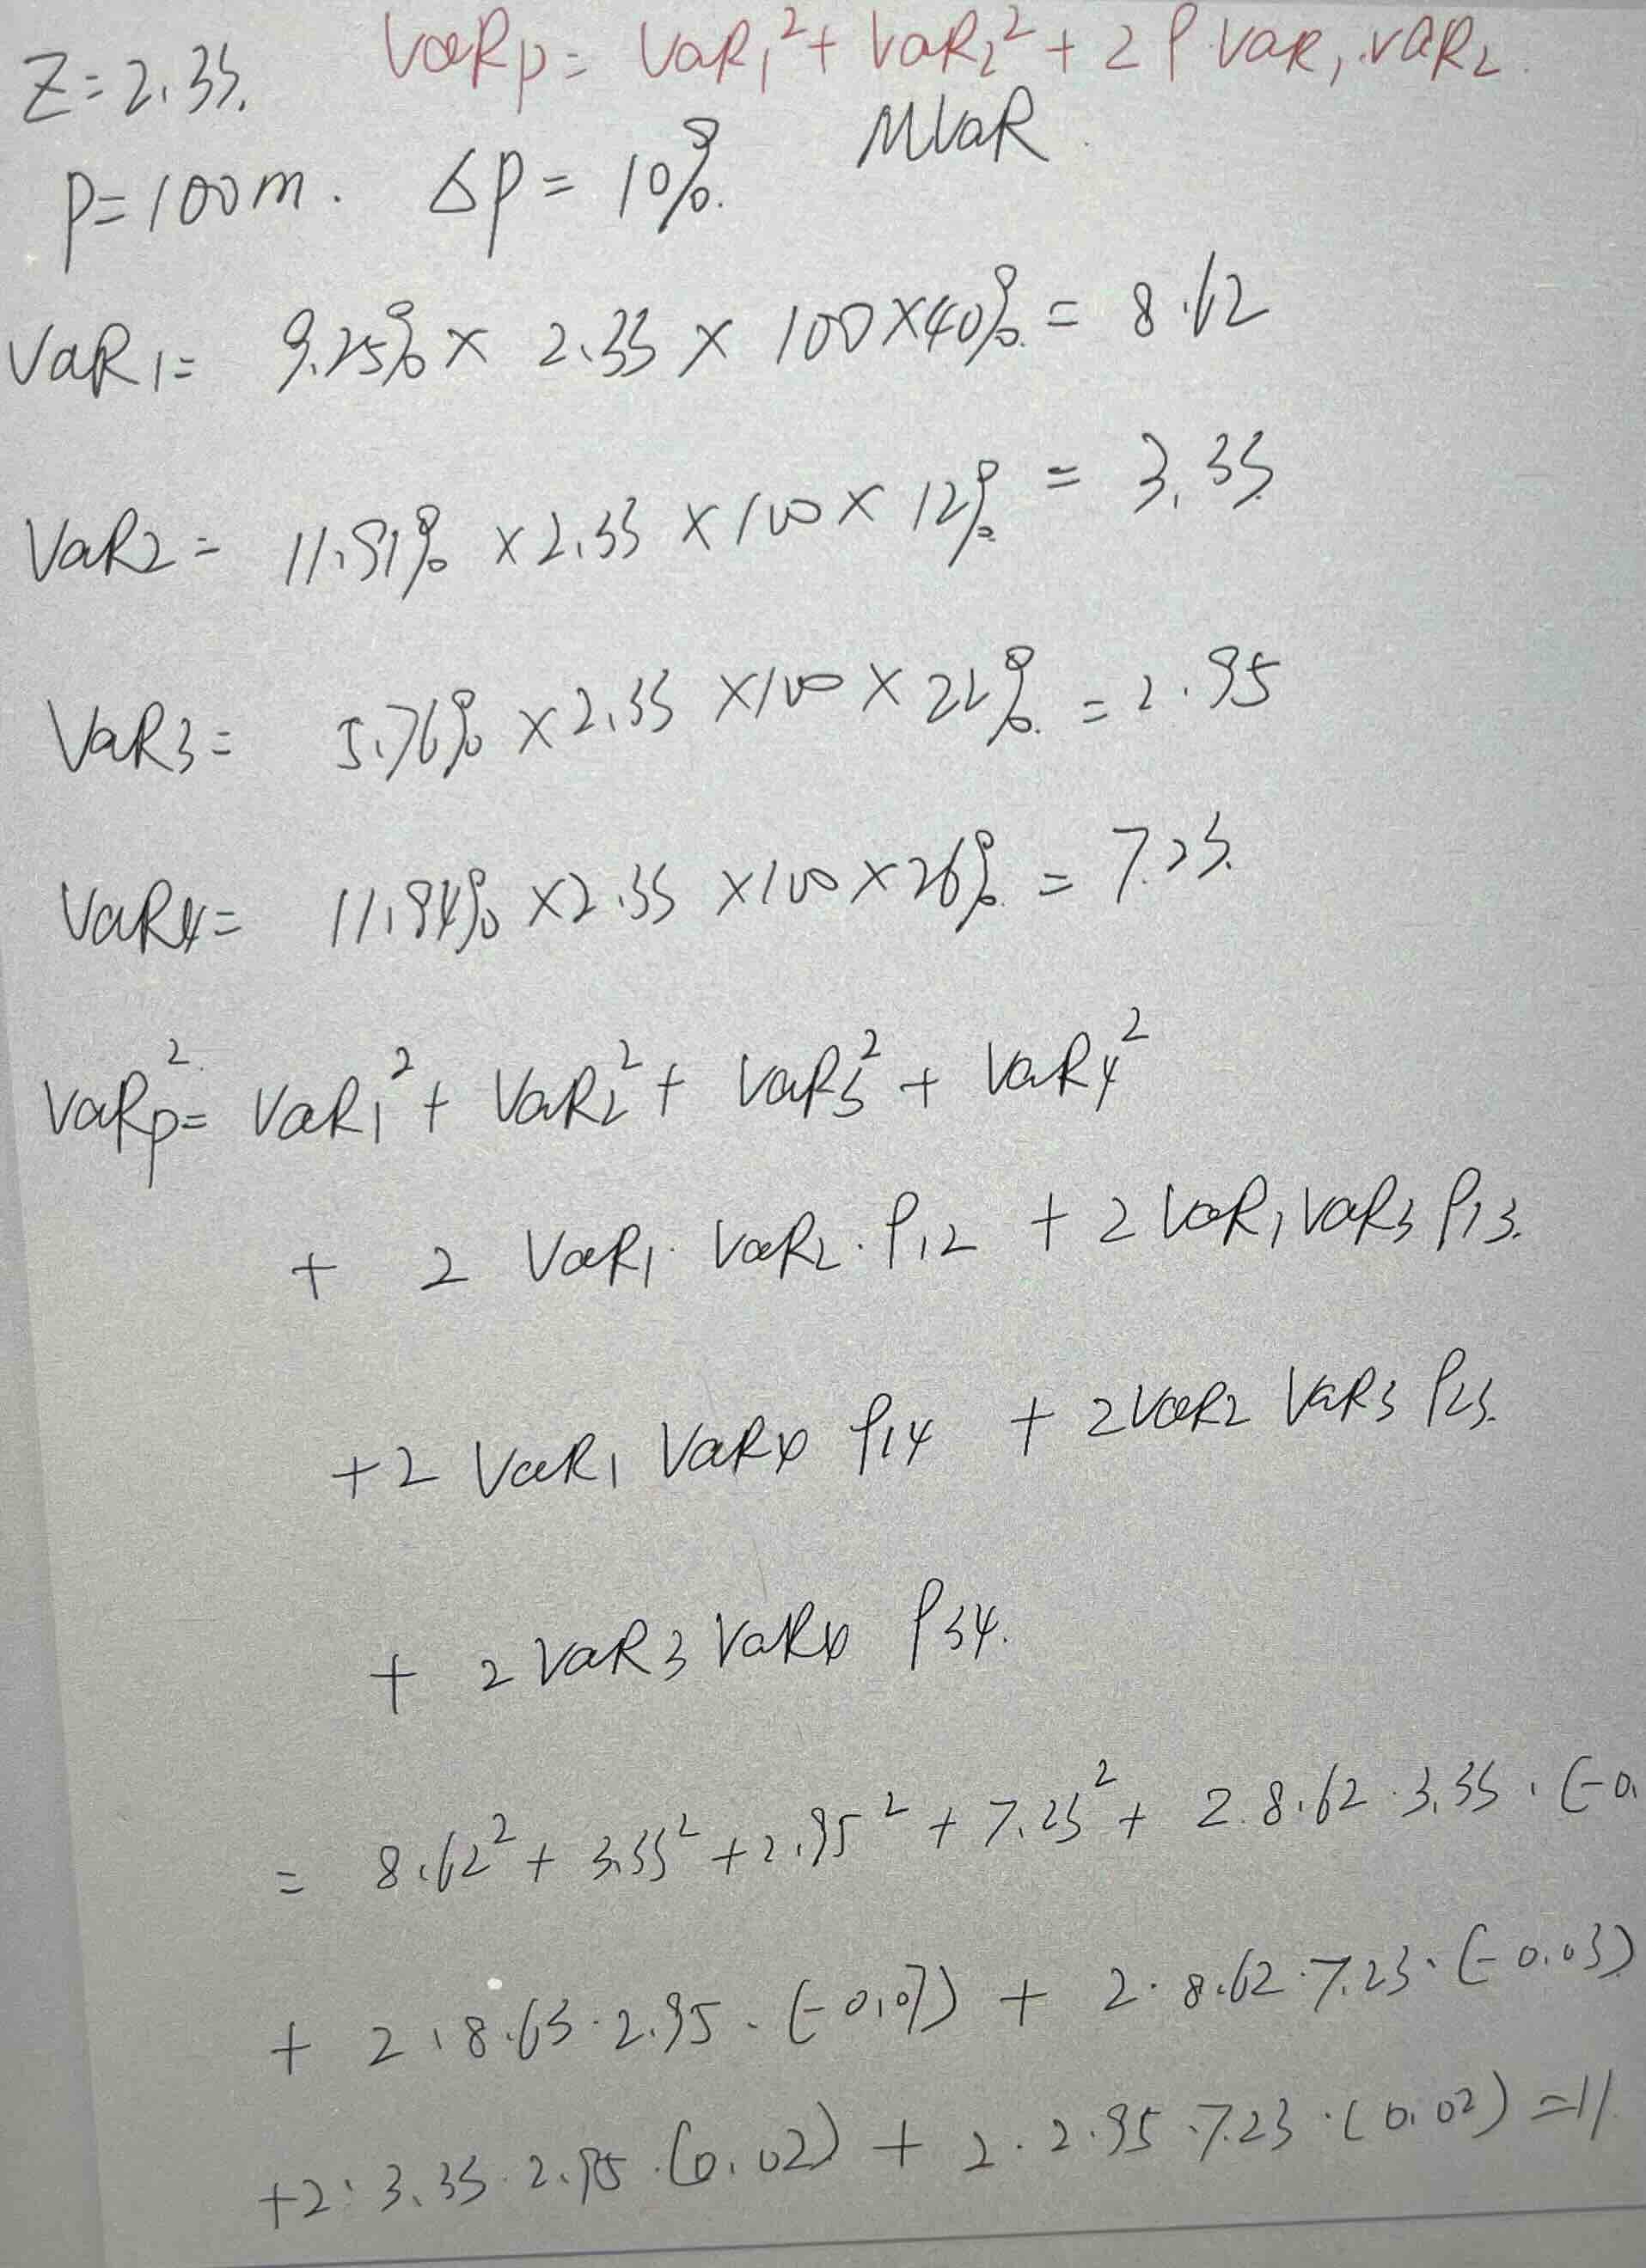 Z=2.33. VaRp= VaR₁²+ VaR₂² + 2 ρ VaR₁.VaR₂.
P=100m. ΔP= 10%. MVaR.
VaR1= 9.25% × 2.33 × 100×40% = 8.62
VaR2= 11.91% ×2.33 ×100× 12% = 3.33
VaR3= 5.76% ×2.33 ×100 × 22% =2.95
VaR4= 11.94% ×2.33 ×100×26% = 7.23.
VaRp²= VaR₁²+ VaR₂²+ VaR₃²+ VaR₄²
+ 2 VaR₁. VaR₂. ρ12 + 2 VaR₁ VaR₃ ρ13.
+2 VaR₁ VaR4 ρ14 + 2VaR2 VaR3 ρ23.
+ 2 VaR3 VaR4 ρ34.
= 8.62²+ 3.33²+2.95²+7.23²+ 2.8.62.3.33.(-0.
+ 2.8.63.2.95.(-0.07) + 2.8.62.7.23.(-0.03)
+2.3.33.2.95.(0.02) + 2.2.95.7.23.(0.02) =11